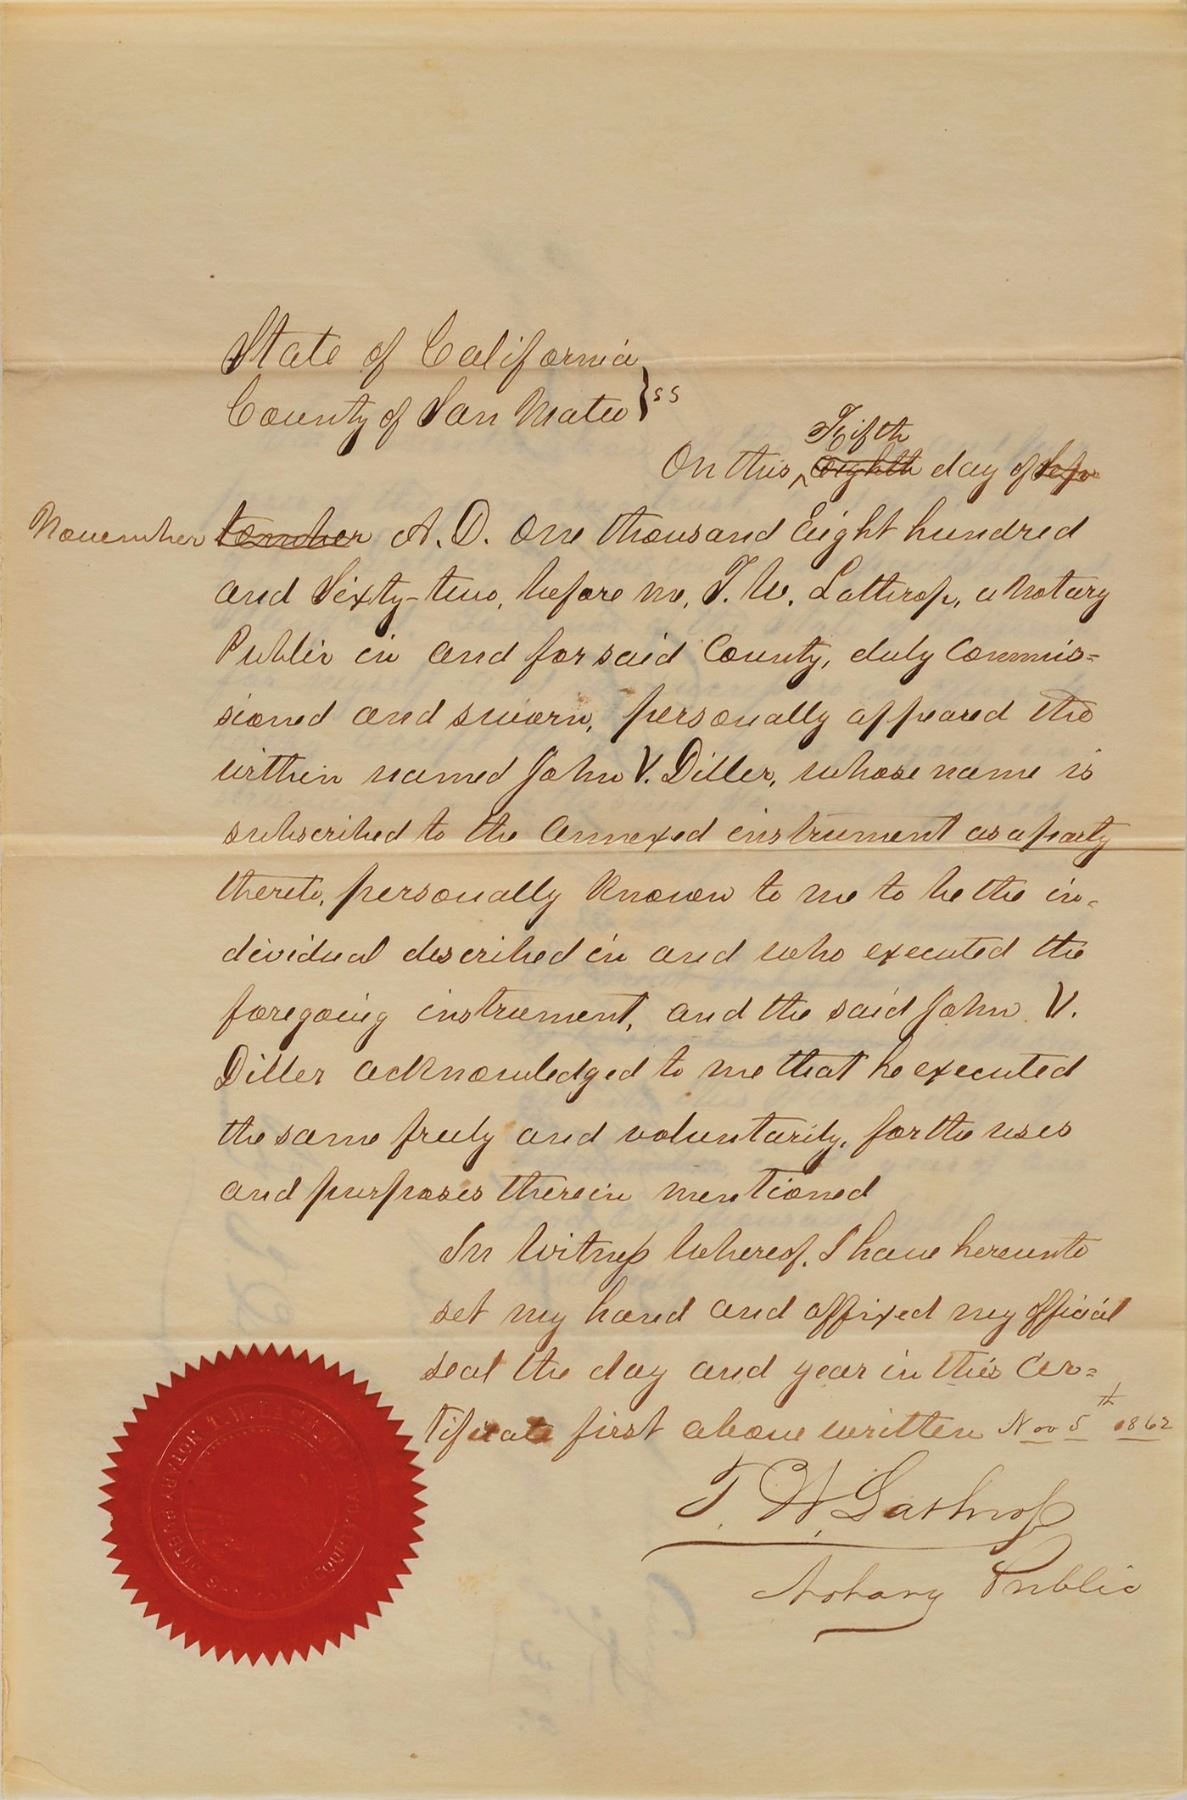 State of California
County of San Mateo } ss
Fifth
On this ^ eighth day of Sep
November tember A. D. One thousand Eight hundred
and Sixty-two, before me, T. W. Lathrop, a Notary
Public in and for said County, duly Commis=
sioned and sworn, personally appeared the
within named John V. Diller, whose name is
subscribed to the annexed instrument as a party
thereto, personally known to me to be the in=
dividual described in and who executed the
foregoing instrument, and the said John V.
Diller acknowledged to me that he executed
the same freely and voluntarily, for the uses
and purposes therein mentioned
In Witness Whereof, I have hereunto
set my hand and affixed my official
seal the day and year in this Cer=
tificate first above written Nov 5th 1862
T. W. Lathrop
Notary Public